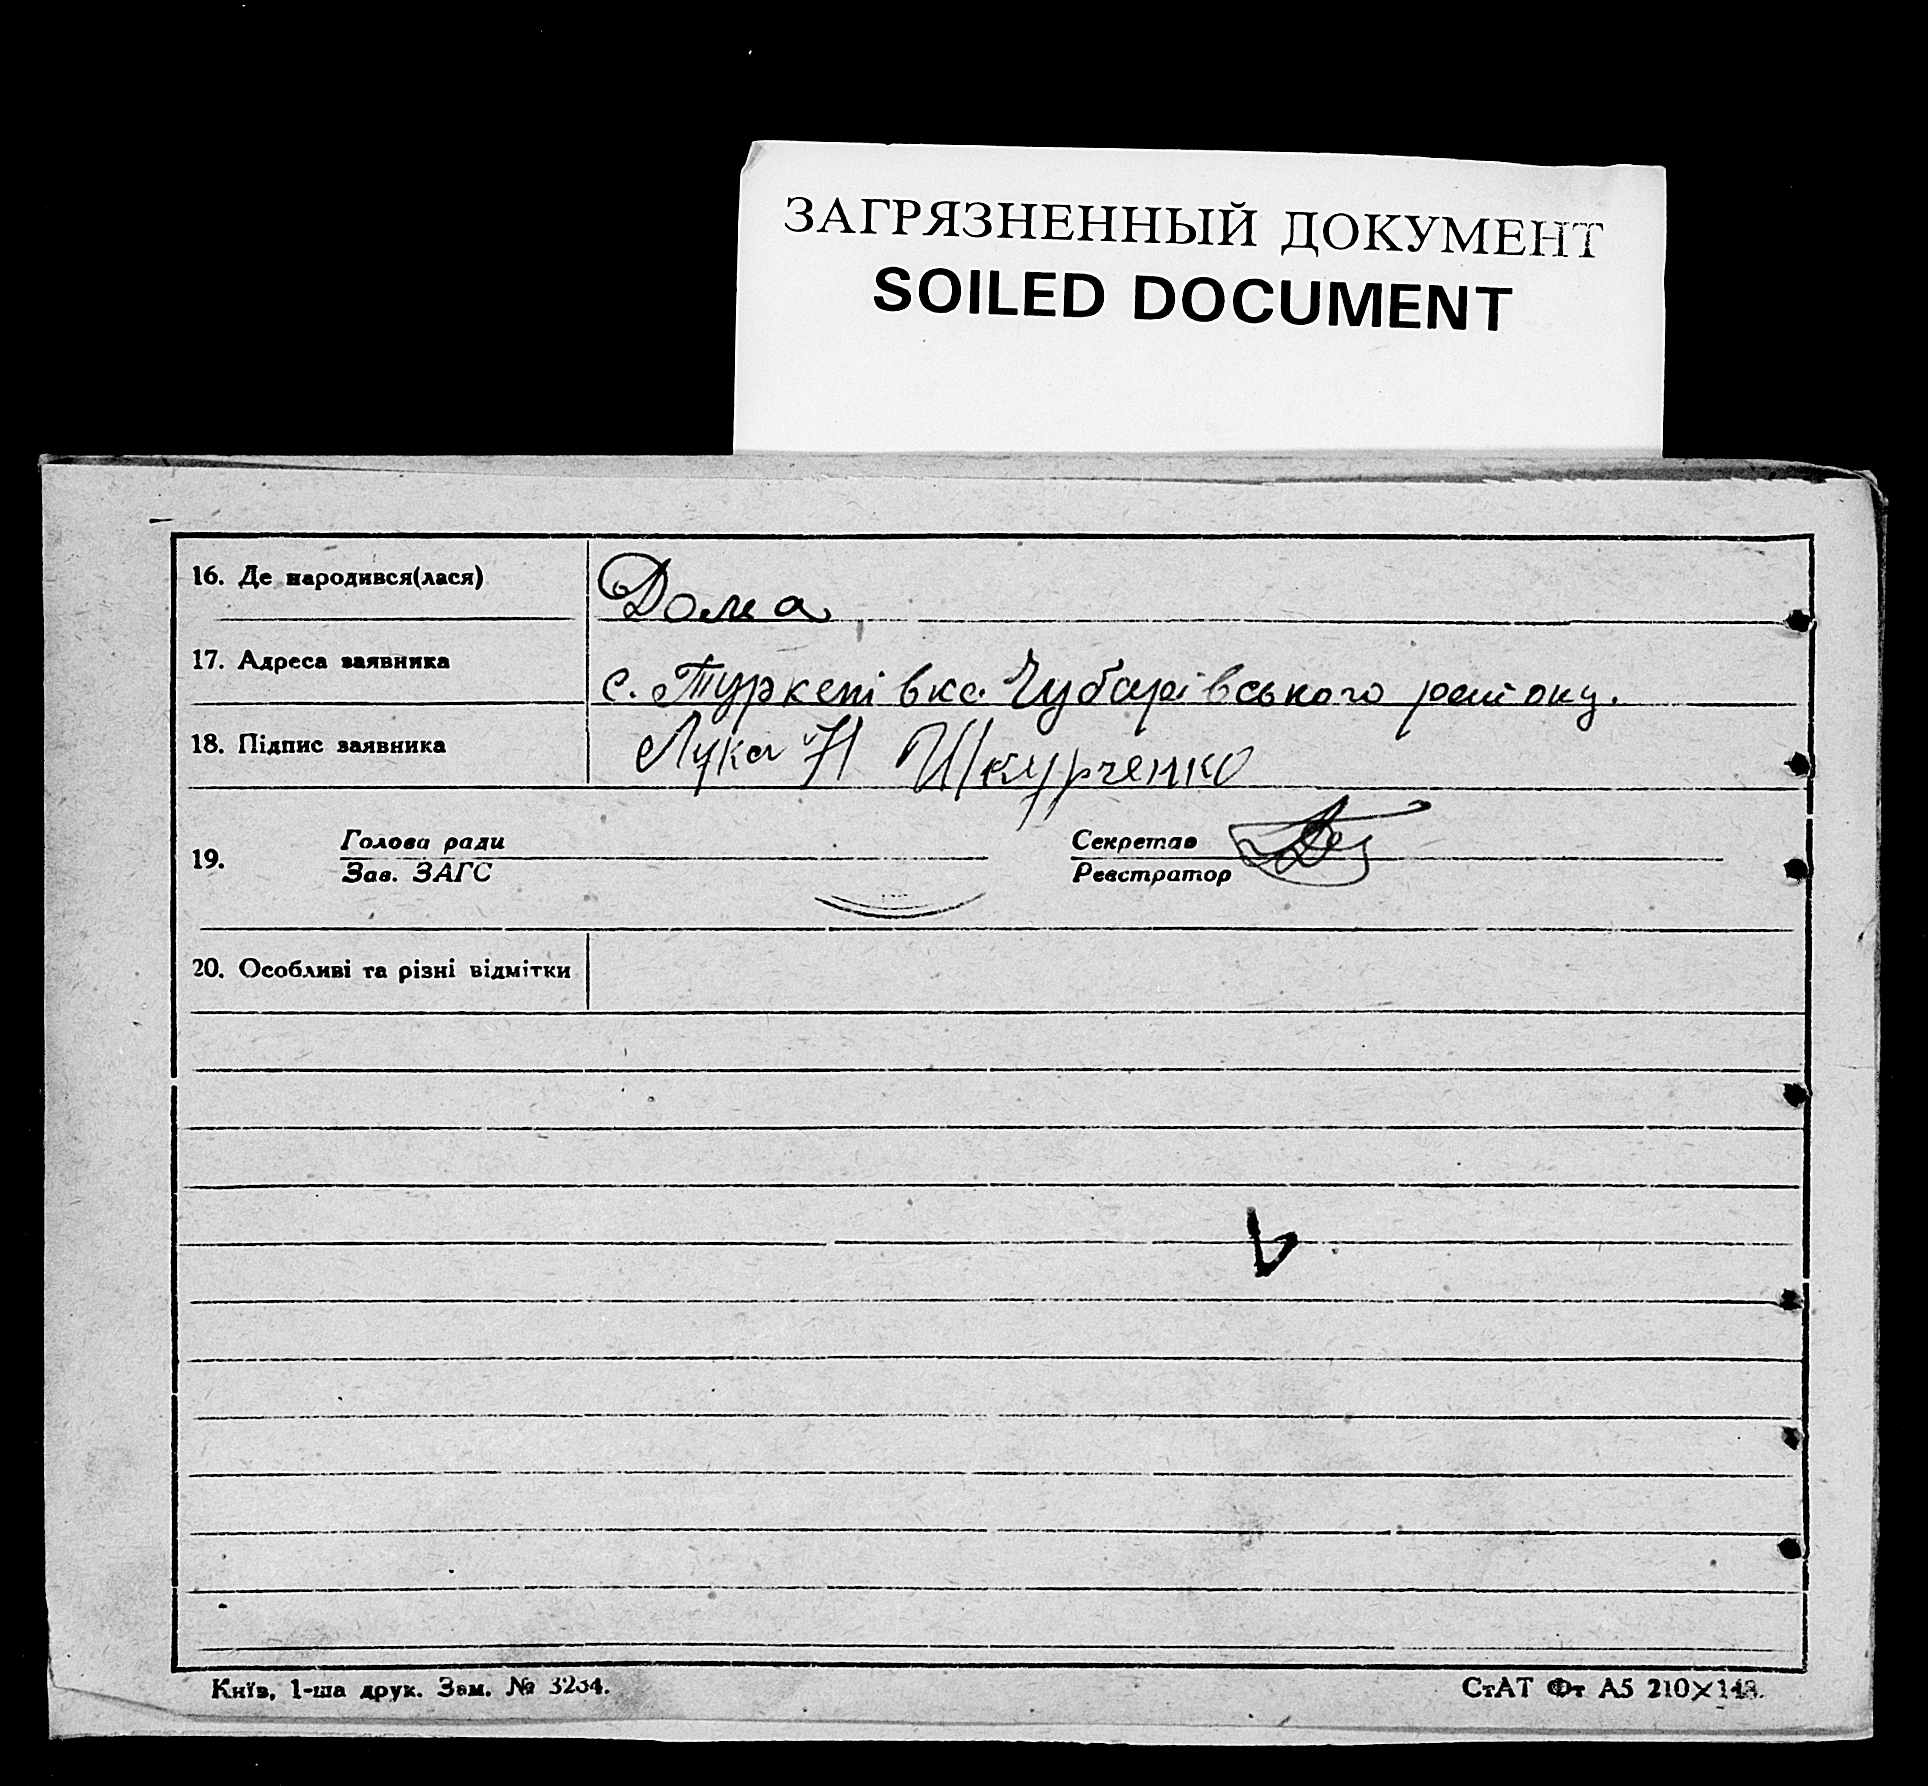 ЗАГРЯЗНЕННЫЙ ДОКУМЕНТ
SOILED DOCUMENT
16. Де народився(лася)
Дома
17. Адреса заявника
с. Туркенівка Чубарівського району.
18. Підпис заявника
Лука Шкурченко
19.
Голова ради
Зав. ЗАГС
Секретар
Реєстратор
20. Особливі та різні відмітки
Київ, 1-ша друк. Зам. № 3234.
СтАТ Фт А5 210×148.